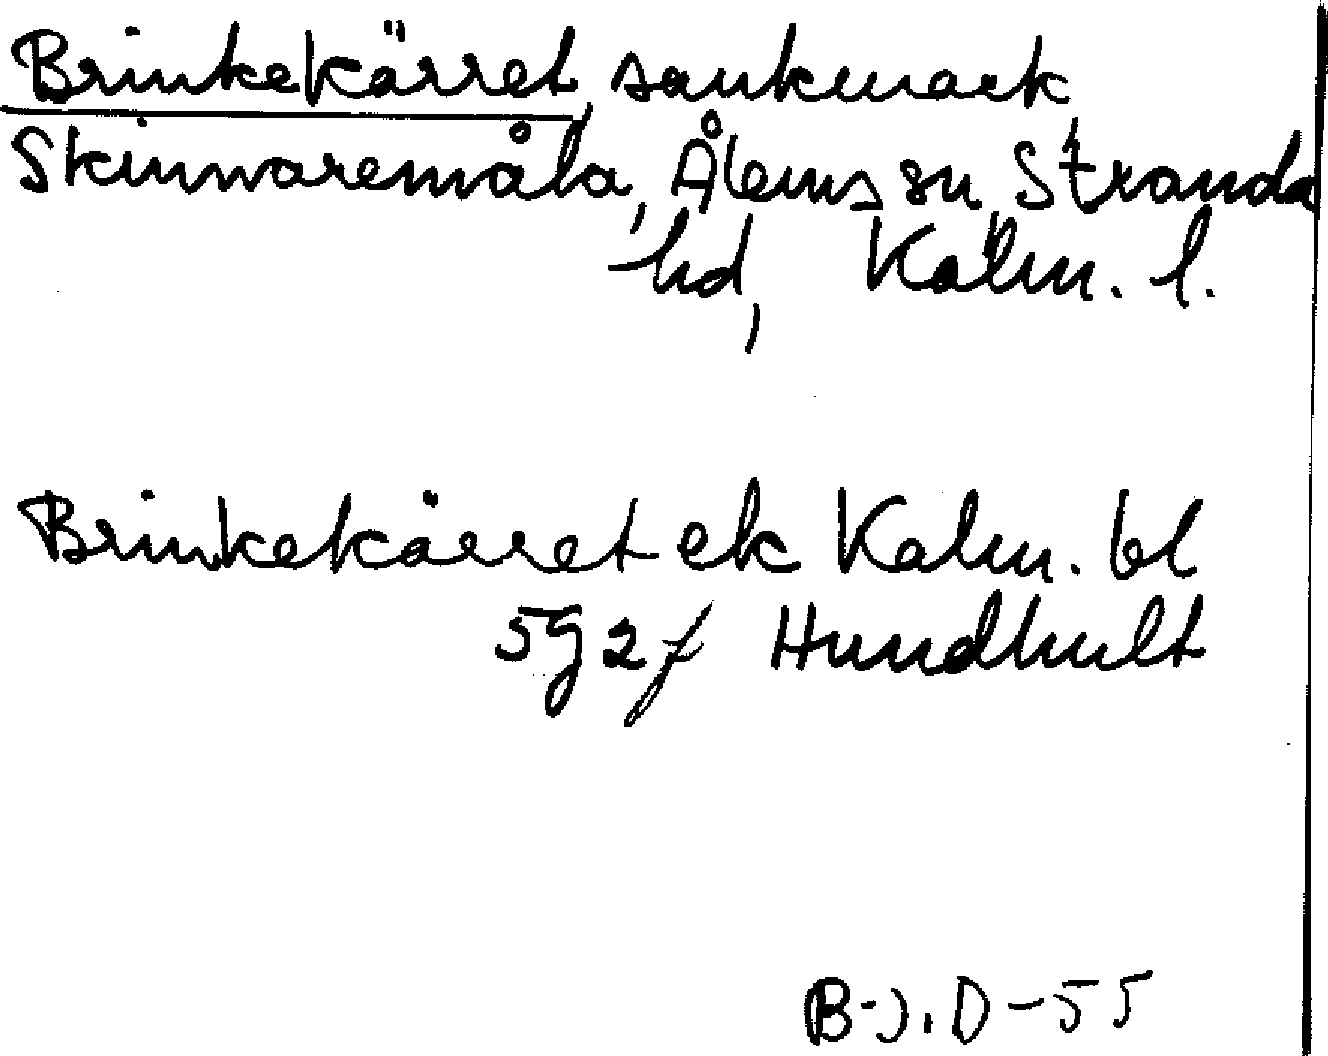 Brinkekärret, sankmark
Skinnaremåla, Ålems sn, Stranda
hd, Kalm. l.
Brinkekärret ek Kalm. bl
5g 2f Hundhult
B-J.D-55